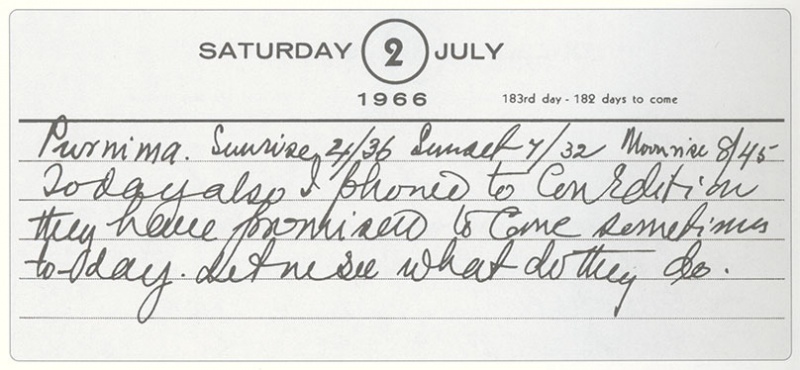 SATURDAY 2 JULY
1966
183rd day - 182 days to come
Purnima. Sunrise 4/36 Sunset 7/32 Moonrise 8/45
Today also I phoned to Con Edition
they have promised to come sometimes
to-day. Let me see what do they do.